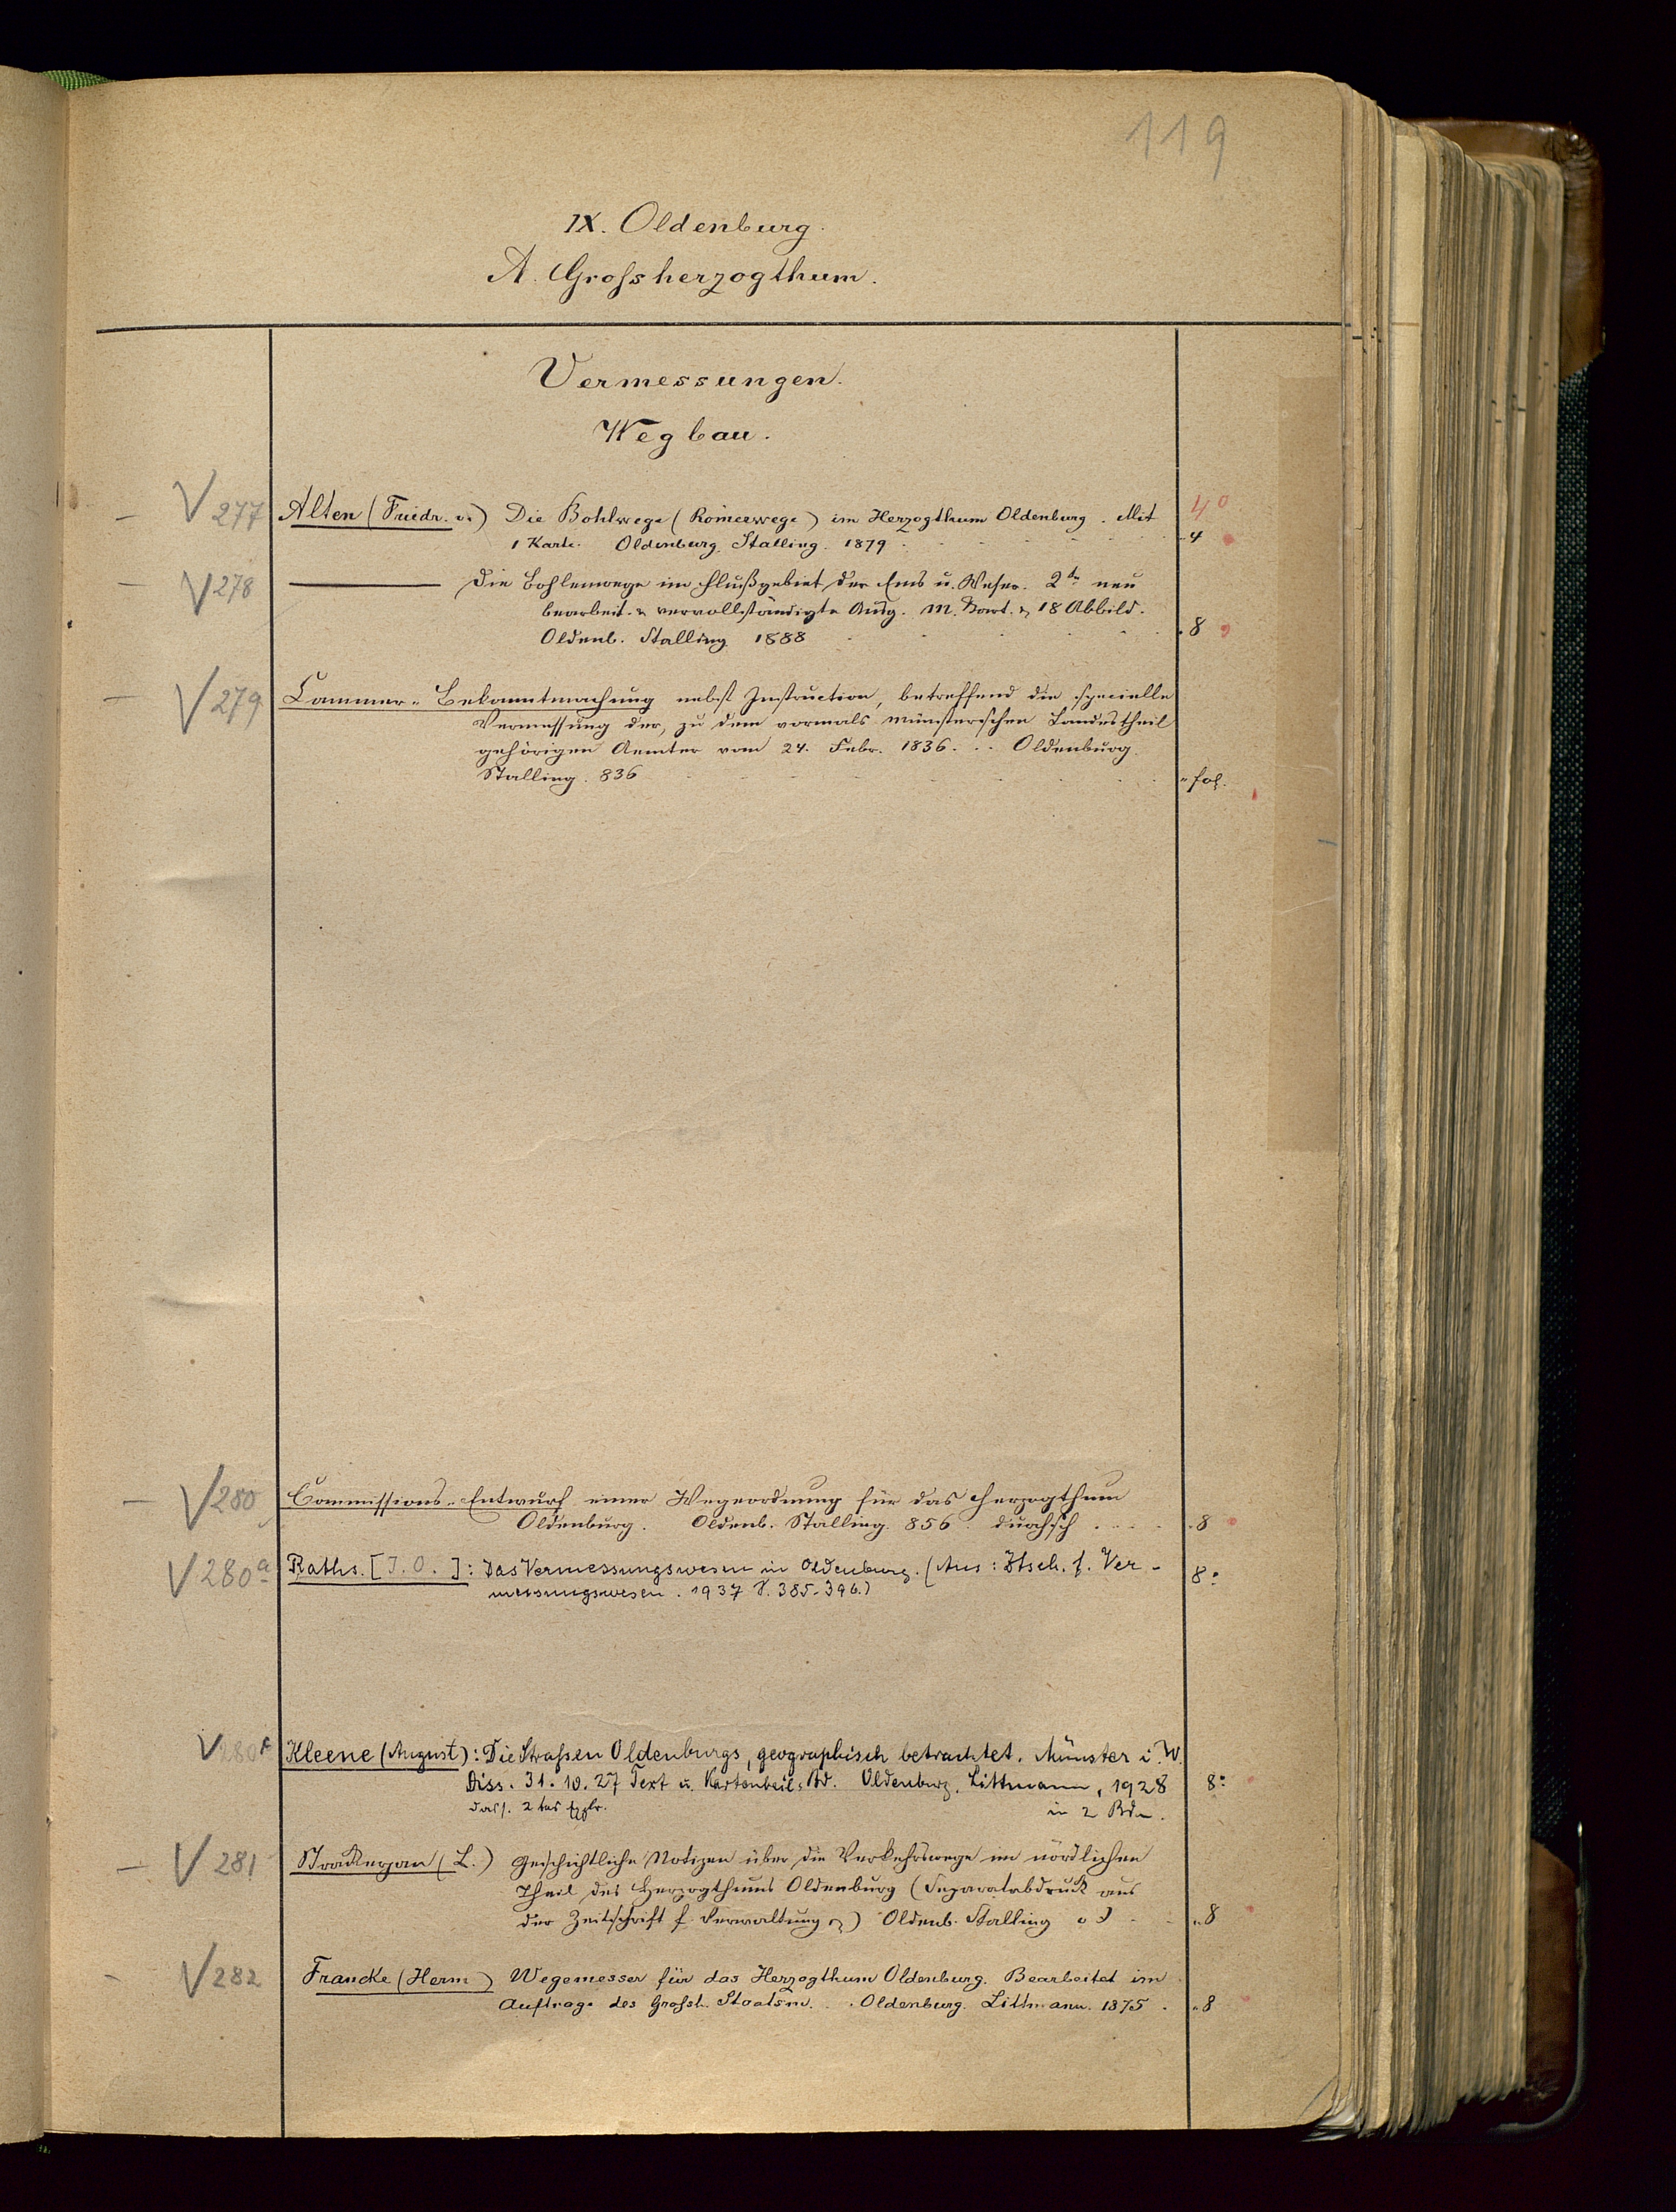 119
IX. Oldenburg.
A. Grofsherzogthum.
Vermessungen.
Wegbau.
V 277 Alten (Friedr. v.) Die Bohlwege (Römerwege) im Herzogthum Oldenburg. Mit 4°
1 Karte. Oldenburg. Stalling. 1879 4
V 278 — Die Bohlenwege im Flußgebiet der Ems u. Weser. 2te neu
bearbeit. & vervollständigte Ausg. M. Kart. & 18 Abbild.
Oldenb. Stalling 1888 8
V 279 Cammer-Bekanntmachung nebst Instruction, betreffend die specielle
Vermessung der, zu dem vormals münsterschen Landestheil
gehörigen Aemter vom 24. Febr. 1836. .. Oldenburg.
Stalling. 836 fol.
V 280 Commissions-Entwurf einer Wegeordnung für das Herzogthum
Oldenburg. Oldenb. Stalling. 856. durchsch .... 8
V 280a Raths. [J. O.]: Das Vermessungswesen in Oldenburg. (Aus: Ztsch. f. Ver- 8°
messungswesen. 1937 S. 385-396.)
V 280 Kleene (August): Die Strafsen Oldenburgs, geographisch betrachtet. Münster i. W.
Diss. 31.10.27 Text u. Kartenteil: Bd. Oldenburg. Littmann, 1928 8°
dass. 2tes Explr. in 2 Bdn.
V 281 Strackerjan (L.) Geschichtliche Notizen über die Verkehrswege im nördlichen
Theil des Herzogthums Oldenburg (Separatabdruck aus
der Zeitschrift f. Verwaltung &) Oldenb. Stalling o J 8
V 282 Francke (Herm) Wegemesser für das Herzogthum Oldenburg. Bearbeitet im
Auftrage des Grofsh. Staatsm. .. Oldenburg. Littmann. 1875. 8